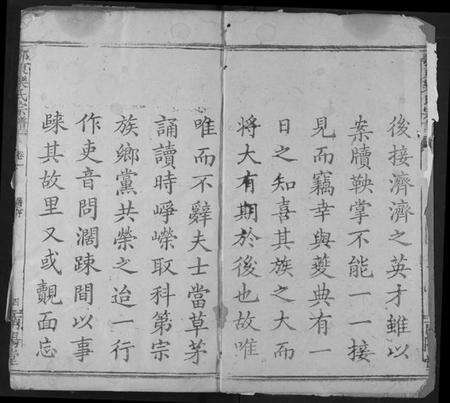 後接濟濟之英才雖以
案牘鞅掌不能一一接
見而竊幸與夔典有一
日之知喜其族之大而
將大有期於後也故唯
唯而不辭夫士當草茅
誦讀時崢嶸取科第宗
族鄉黨共榮之迨一行
作吏音問濶踈間以事
踈其故里又或覿面忘